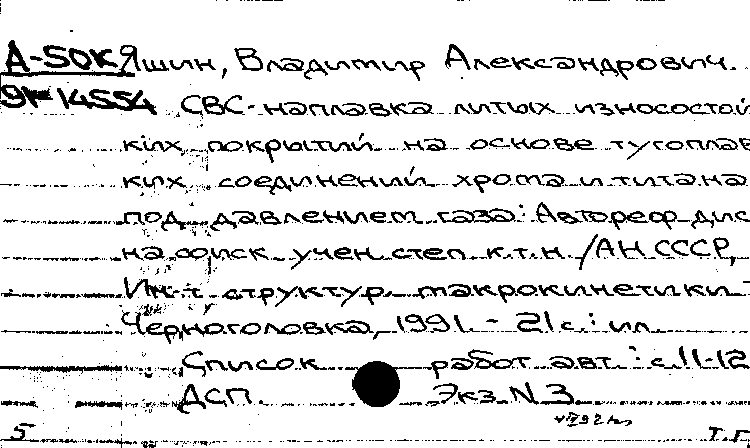 А-50К Яшин, Владимир Александрович.
91-14554 СВС-наплавка литых износостой
ких покрытий на основе тугоплав
ких соединений хрома и титана
под давлением газа: Автореф. дис
на соиск. учен. степ. к.т.н. / АН СССР,
Ин-т структур. макрокинетики. -
Черноголовка, 1991. - 21 с.: ил.
Список работ авт.: с. 11-12
ДСП. Экз. N 3.
5